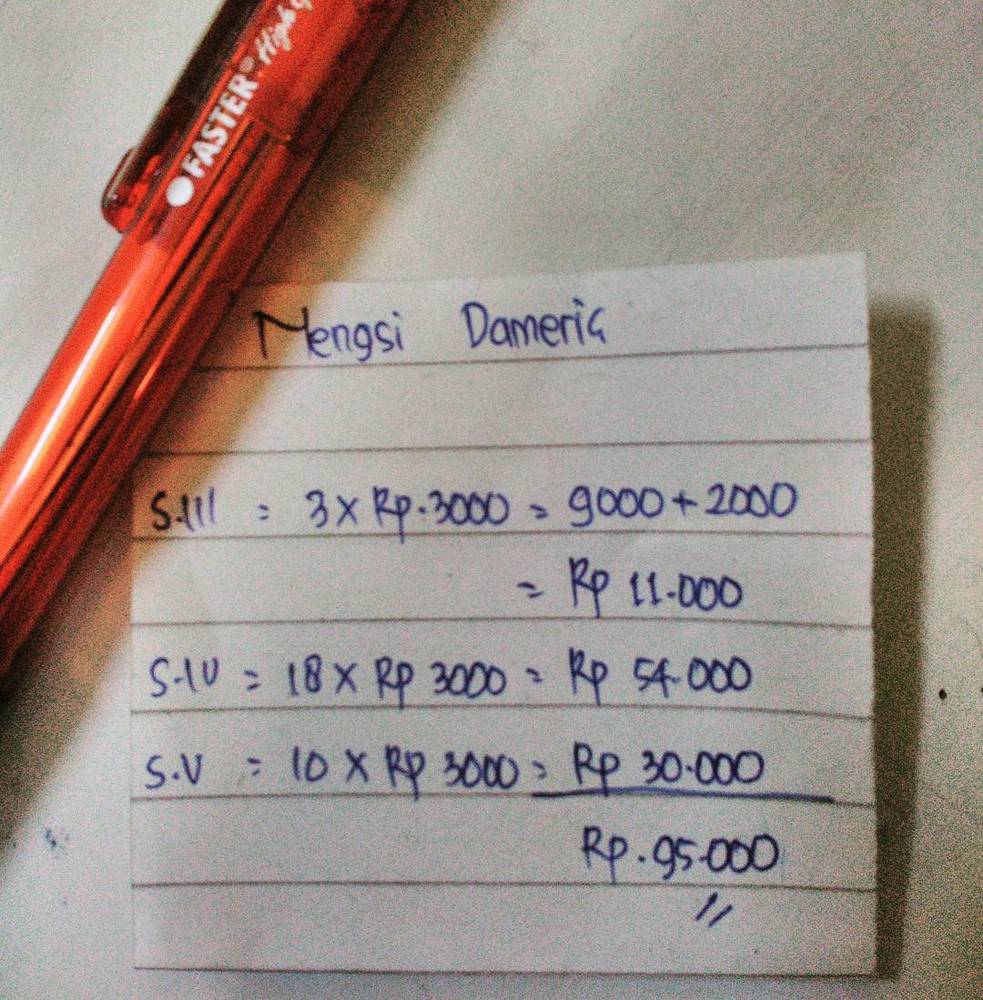 FASTER High
Mengsi Dameria
S.III = 3 x Rp.3000 = 9000 + 2000
= Rp 11.000
S.IV = 18 x Rp 3000 = Rp 54.000
S.V = 10 x Rp 3000 = Rp 30.000
Rp.95.000